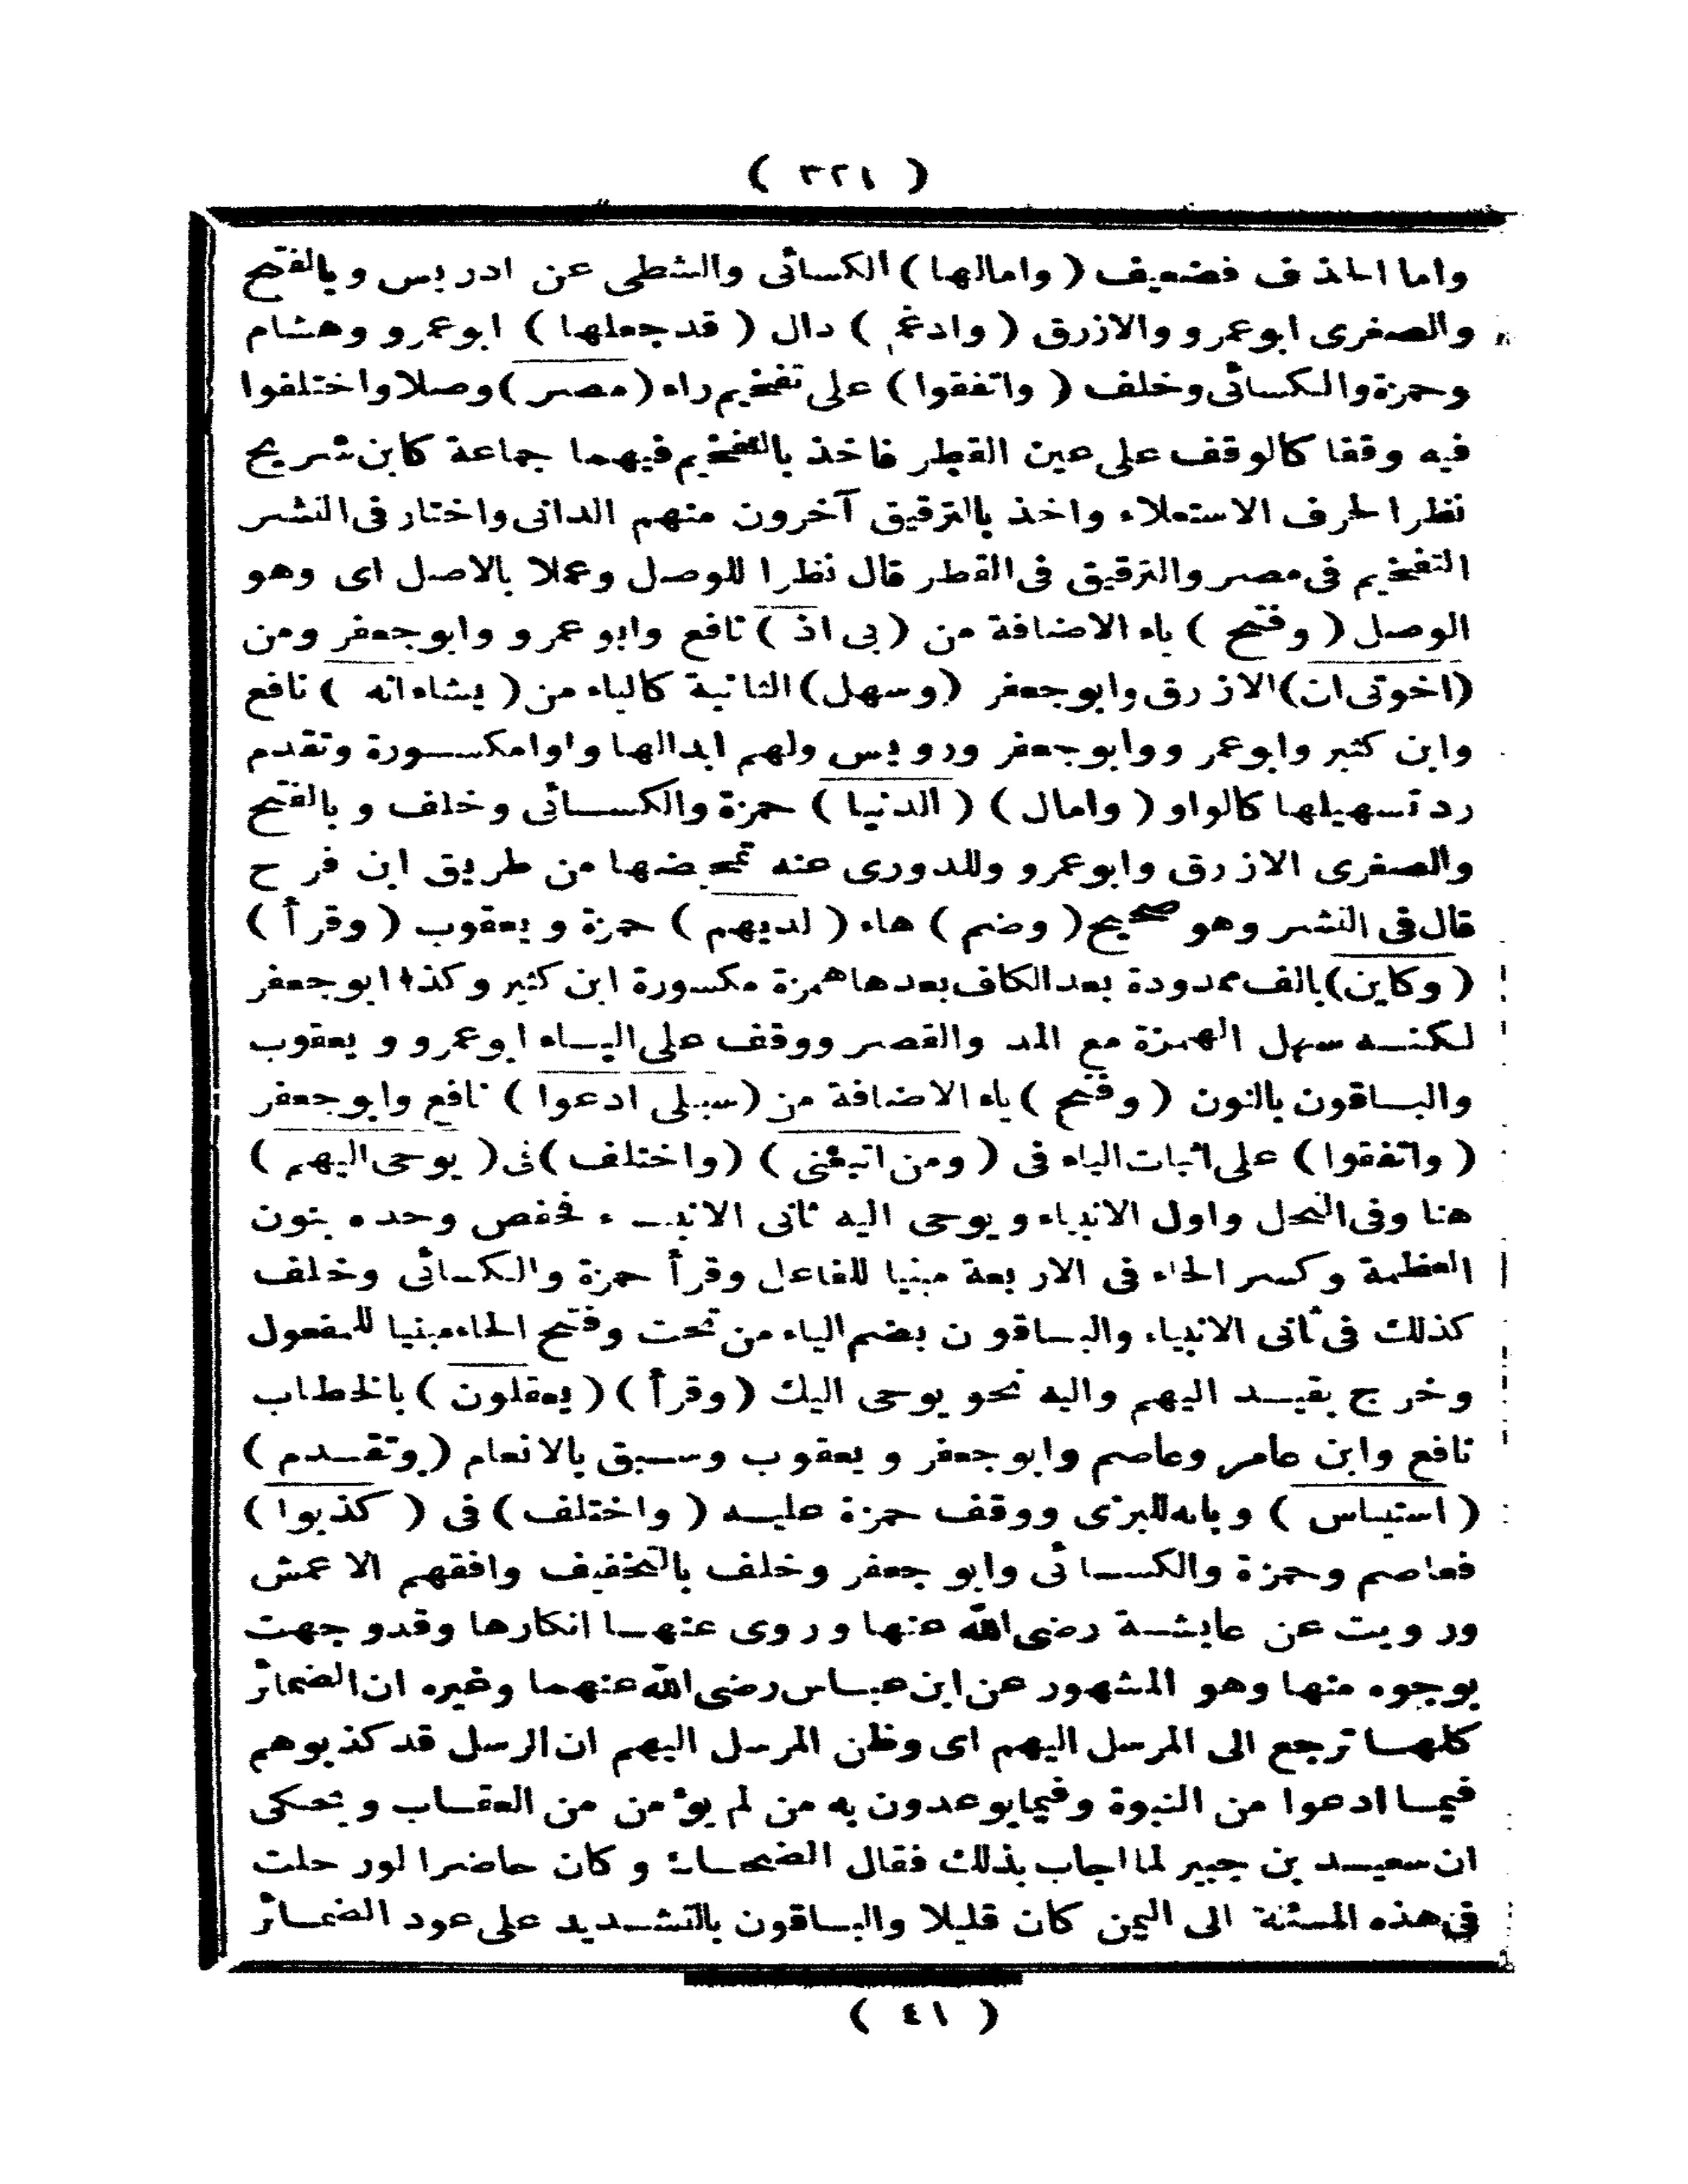 ( ٣٢١ )
واما الحذف فضعيف ( وامالها ) الكسائى والشطى عن ادريس وبالفتح
والصغرى ابوعمرو والازرق ( وادغم ) دال ( قد جعلها ) ابوعمرو وهشام
وحمزة والكسائى وخلف ( واتفقوا ) على تفخيم راء ( مصر ) وصلا واختلفوا
فيه وقفا كالوقف على عين القطر فاخذ بالتفخيم فيهما جماعة كابن شريح
نظرا لحرف الاستعلاء واخذ بالترقيق آخرون منهم الدانى واختار فى النشر
التفخيم فى مصر والترقيق فى القطر قال نظرا للوصل وعملا بالاصل اى وهو
الوصل ( وفتح ) ياء الاضافة من ( بى اذ ) نافع وابو عمرو وابوجعفر ومن
( اخوتى ان ) الازرق وابوجعفر ( وسهل ) الثانية كالياء من ( يشاء انه ) نافع
وابن كثير وابوعمر ووابوجعفر ورويس ولهم ابدالها واوا مكسورة وتقدم
رد تسهيلها كالواو ( وامال ) ( الدنيا ) حمزة والكسائى وخلف و بالفتح
والصغرى الازرق وابوعمرو وللدورى عنه تمحيضها من طريق ابن فرح
قال فى النشر وهو صحيح ( وضم ) هاء ( لديهم ) حمزة و يعقوب ( وقرأ )
( وكاين ) بالف ممدودة بعد الكاف بعدها همزة مكسورة ابن كثير وكذا ابوجعفر
لكنه سهل الهمزة مع المد والقصر ووقف على الياء ابوعمرو و يعقوب
والباقون بالنون ( وفتح ) ياء الاضافة من ( سبيلى ادعوا ) نافع وابوجعفر
( واتفقوا ) على اثبات الياء فى ( ومن اتبعنى ) ( واختلف ) فى ( يوحى اليهم )
هنا وفى النحل واول الانبياء و يوحى اليه ثانى الانبياء فحفص وحده بنون
العظمة وكسر الحاء فى الاربعة مبنيا للفاعل وقرأ حمزة والكسائى وخلف
كذلك فى ثانى الانبياء والباقون بضم الياء من تحت وفتح الحاء مبنيا للمفعول
وخرج بقيد اليهم واليه نحو يوحى اليك ( وقرأ ) ( يعقلون ) بالخطاب
نافع وابن عامر وعاصم وابوجعفر و يعقوب وسبق بالانعام ( وتقدم )
( استيأس ) وبابه للبزى ووقف حمزة عليه ( واختلف ) فى ( كذبوا )
فعاصم وحمزة والكسائى وابو جعفر وخلف بالتخفيف وافقهم الاعمش
ورويت عن عايشة رضى الله عنها وروى عنها انكارها وقدوجهت
بوجوه منها وهو المشهور عن ابن عباس رضى الله عنهما وغيره ان الضمائر
كلها ترجع الى المرسل اليهم اى وظن المرسل اليهم ان الرسل قد كذبوهم
فيما ادعوا من النبوة وفيما يوعدون به من لم يؤمن من العقاب و يحكى
ان سعيد بن جبير لما اجاب بذلك فقال الضحاك وكان حاضرا لورحلت
فى هذه المسئلة الى اليمن كان قليلا والباقون بالتشديد على عود الضمائر
( ٤١ )